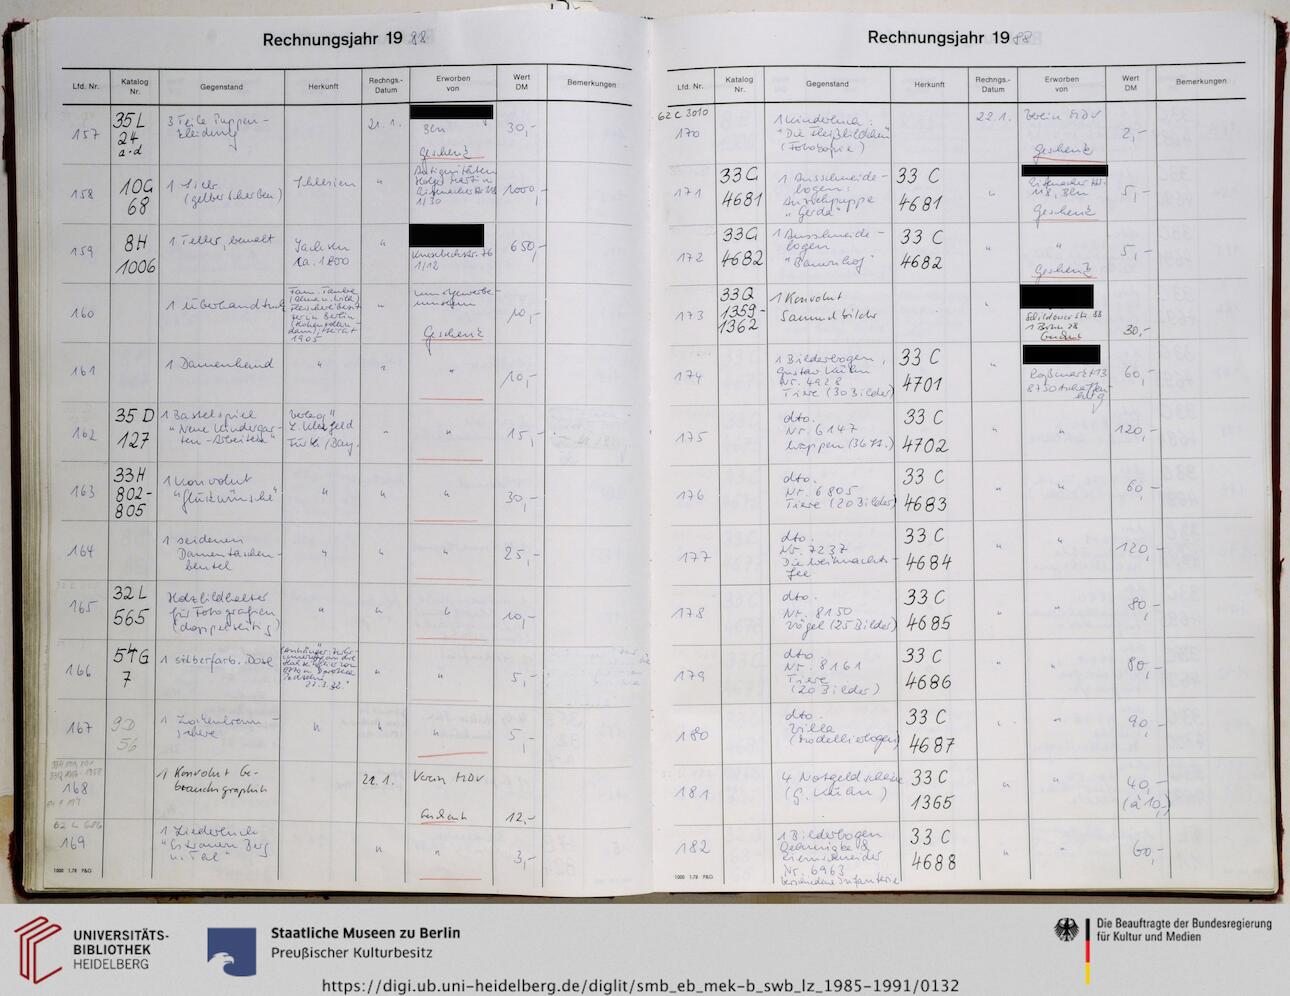 Rechnungsjahr 19 88
Lfd. Nr.
Katalog Nr.
Gegenstand
Herkunft
Rechngs.-Datum
Erworben von
Wert DM
Bemerkungen
157
35 L
24
a-d
3 Teile Puppen-
kleidung
21.1.
Bln
Geschenk
30,-
158
10 G
68
1 Sieb
(gelber Scherben)
Schlesien
"
Antiquitäten
1/30
1000,-
159
8 H
1006
1 Teller, bemalt
Sachsen
ca. 1800
"
Knesebeckstr. 76
1/12
650,-
160
1 Überhandtuch
Fam. Taube
1905
"
museum
Geschenk
10,-
161
1 Damenhemd
"
"
"
10,-
162
35 D
127
1 Bastelspiel
"Neue Kindergar-
ten-Arbeiten"
Verlag
Fürth/Bay.
"
15,-
163
33 H
802-
805
1 Konvolut
"Glückwünsche"
"
"
"
30,-
164
1 seidener
Damentaschen-
beutel
"
"
"
25,-
165
32 L
565
Holzbildhalter
für Fotografien
(doppelseitig)
"
"
"
10,-
166
54 G
7
1 silberfarb. Dose
"
"
5,-
167
9 D
56
1 Lockenbrenn-
schere
"
"
"
5,-
168
1 Konvolut Ge-
brauchsgraphik
22.1.
Verein MDV
Geschenk
12,-
62 L 686
169
1 Liederbuch
"
"
3,-
1000 1.78 P&G
Rechnungsjahr 19 88
Lfd. Nr.
Katalog Nr.
Gegenstand
Herkunft
Rechngs.-Datum
Erworben von
Wert DM
Bemerkungen
62 C 3010
170
1 Kinderbuch:
"Die Fleißbildchen"
(Fotokopie)
22.1.
Verein MDV
Geschenk
2,-
171
33 G
4681
1 Ausschneide-
bogen:
Anziehpuppe
"Gerda"
33 C
4681
"
118, Bln
Geschenk
5,-
172
33 G
4682
1 Ausschneide-
bogen
"Bauernhof"
33 C
4682
"
"
Geschenk
5,-
173
33 Q
1359-
1362
1 Konvolut
Sammelbilder
"
Schildower Str. 88
1 Berlin 28
Geschenk
30,-
174
1 Bilderbogen,
Gustav Kühn
Nr. 4928
Tiere (30 Bilder)
33 C
4701
"
Roßmarkt 13
8750 Aschaffen-
burg
60,-
175
dto.
Nr. 6147
Wappen (36 St.)
33 C
4702
"
"
120,-
176
dto.
Nr. 6805
Tiere (20 Bilder)
33 C
4683
"
"
60,-
177
dto.
Nr. 7237
Die Weihnachts-
fee
33 C
4684
"
"
120,-
178
dto.
Nr. 8150
Vögel (25 Bilder)
33 C
4685
"
"
80,-
179
dto.
Nr. 8161
Tiere
(20 Bilder)
33 C
4686
"
"
80,-
180
dto.
Villa
(Modellierbogen)
33 C
4687
"
"
90,-
181
4 Notgeldscheine
(G. Kühn)
33 C
1365
"
"
40,-
(à 10,-)
182
1 Bilderbogen
Oehmigke &
Riemschneider
Nr. 6963
33 C
4688
"
"
60,-
1000 1.78 P&G
UNIVERSITÄTS-
BIBLIOTHEK
HEIDELBERG
Staatliche Museen zu Berlin
Preußischer Kulturbesitz
Die Beauftragte der Bundesregierung
für Kultur und Medien
https://digi.ub.uni-heidelberg.de/diglit/smb_eb_mek-b_swb_lz_1985-1991/0132